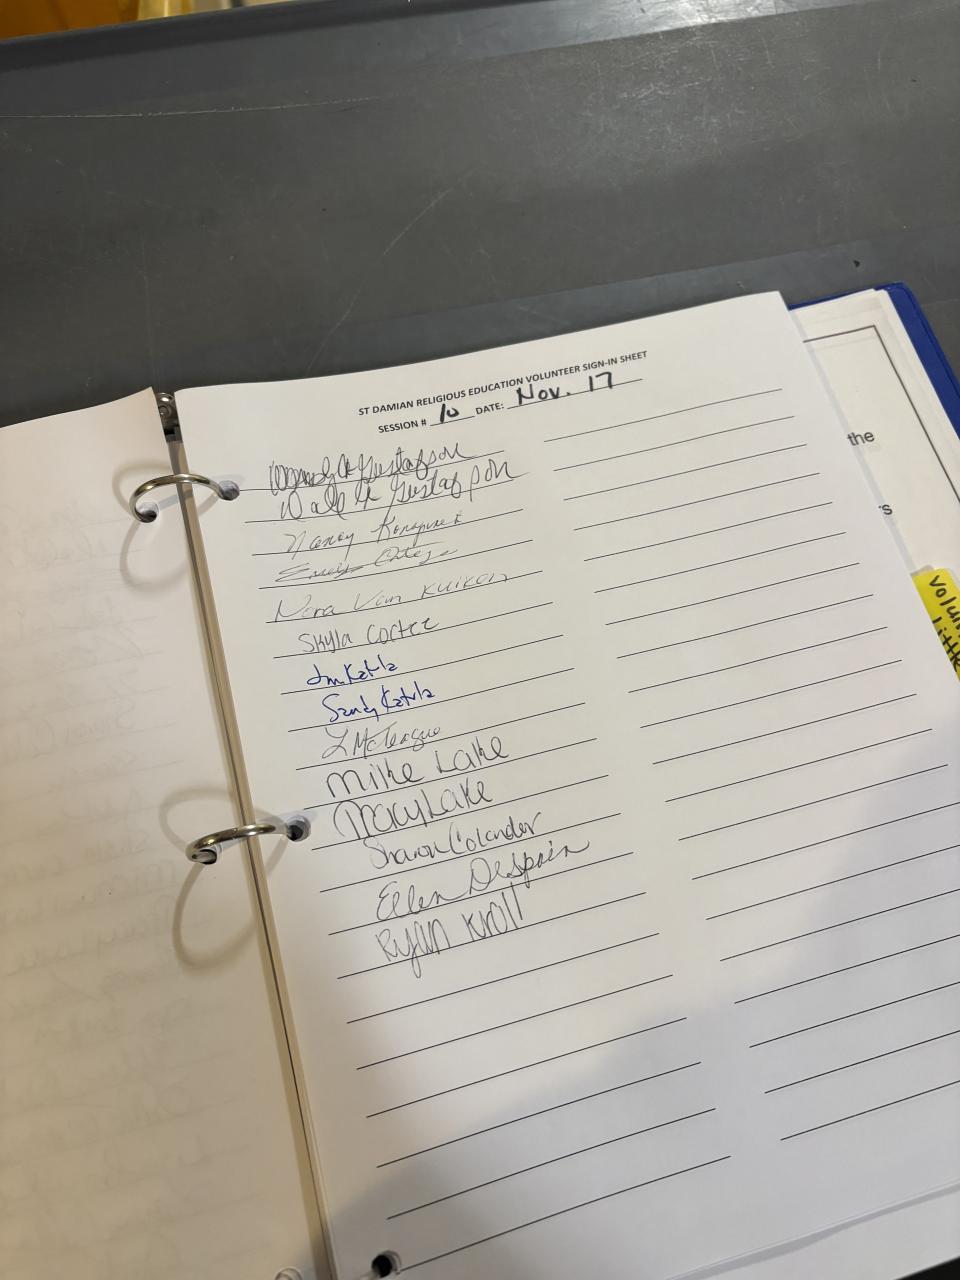 ST DAMIAN RELIGIOUS EDUCATION VOLUNTEER SIGN-IN SHEET
SESSION # 10 DATE: Nov. 17
Gustafson
Dale A Gustafson
Nancy
Emily Ortega
Nora Van Kuiken
Skyla Cortez
Jim Katula
Sandy Katula
L McTeague
Mike Lake
Mary Lake
Sharon Colander
Ellen DeSpain
Ryan Kroll
the
s